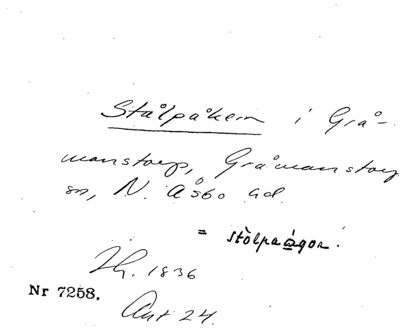 Stålpåkern i Grå-
manstorp, Gråmanstorp
sn, N. Åsbo hd.
= stòlpaågoa.
Lh. 1836
Nr 7258.
Ant 24.